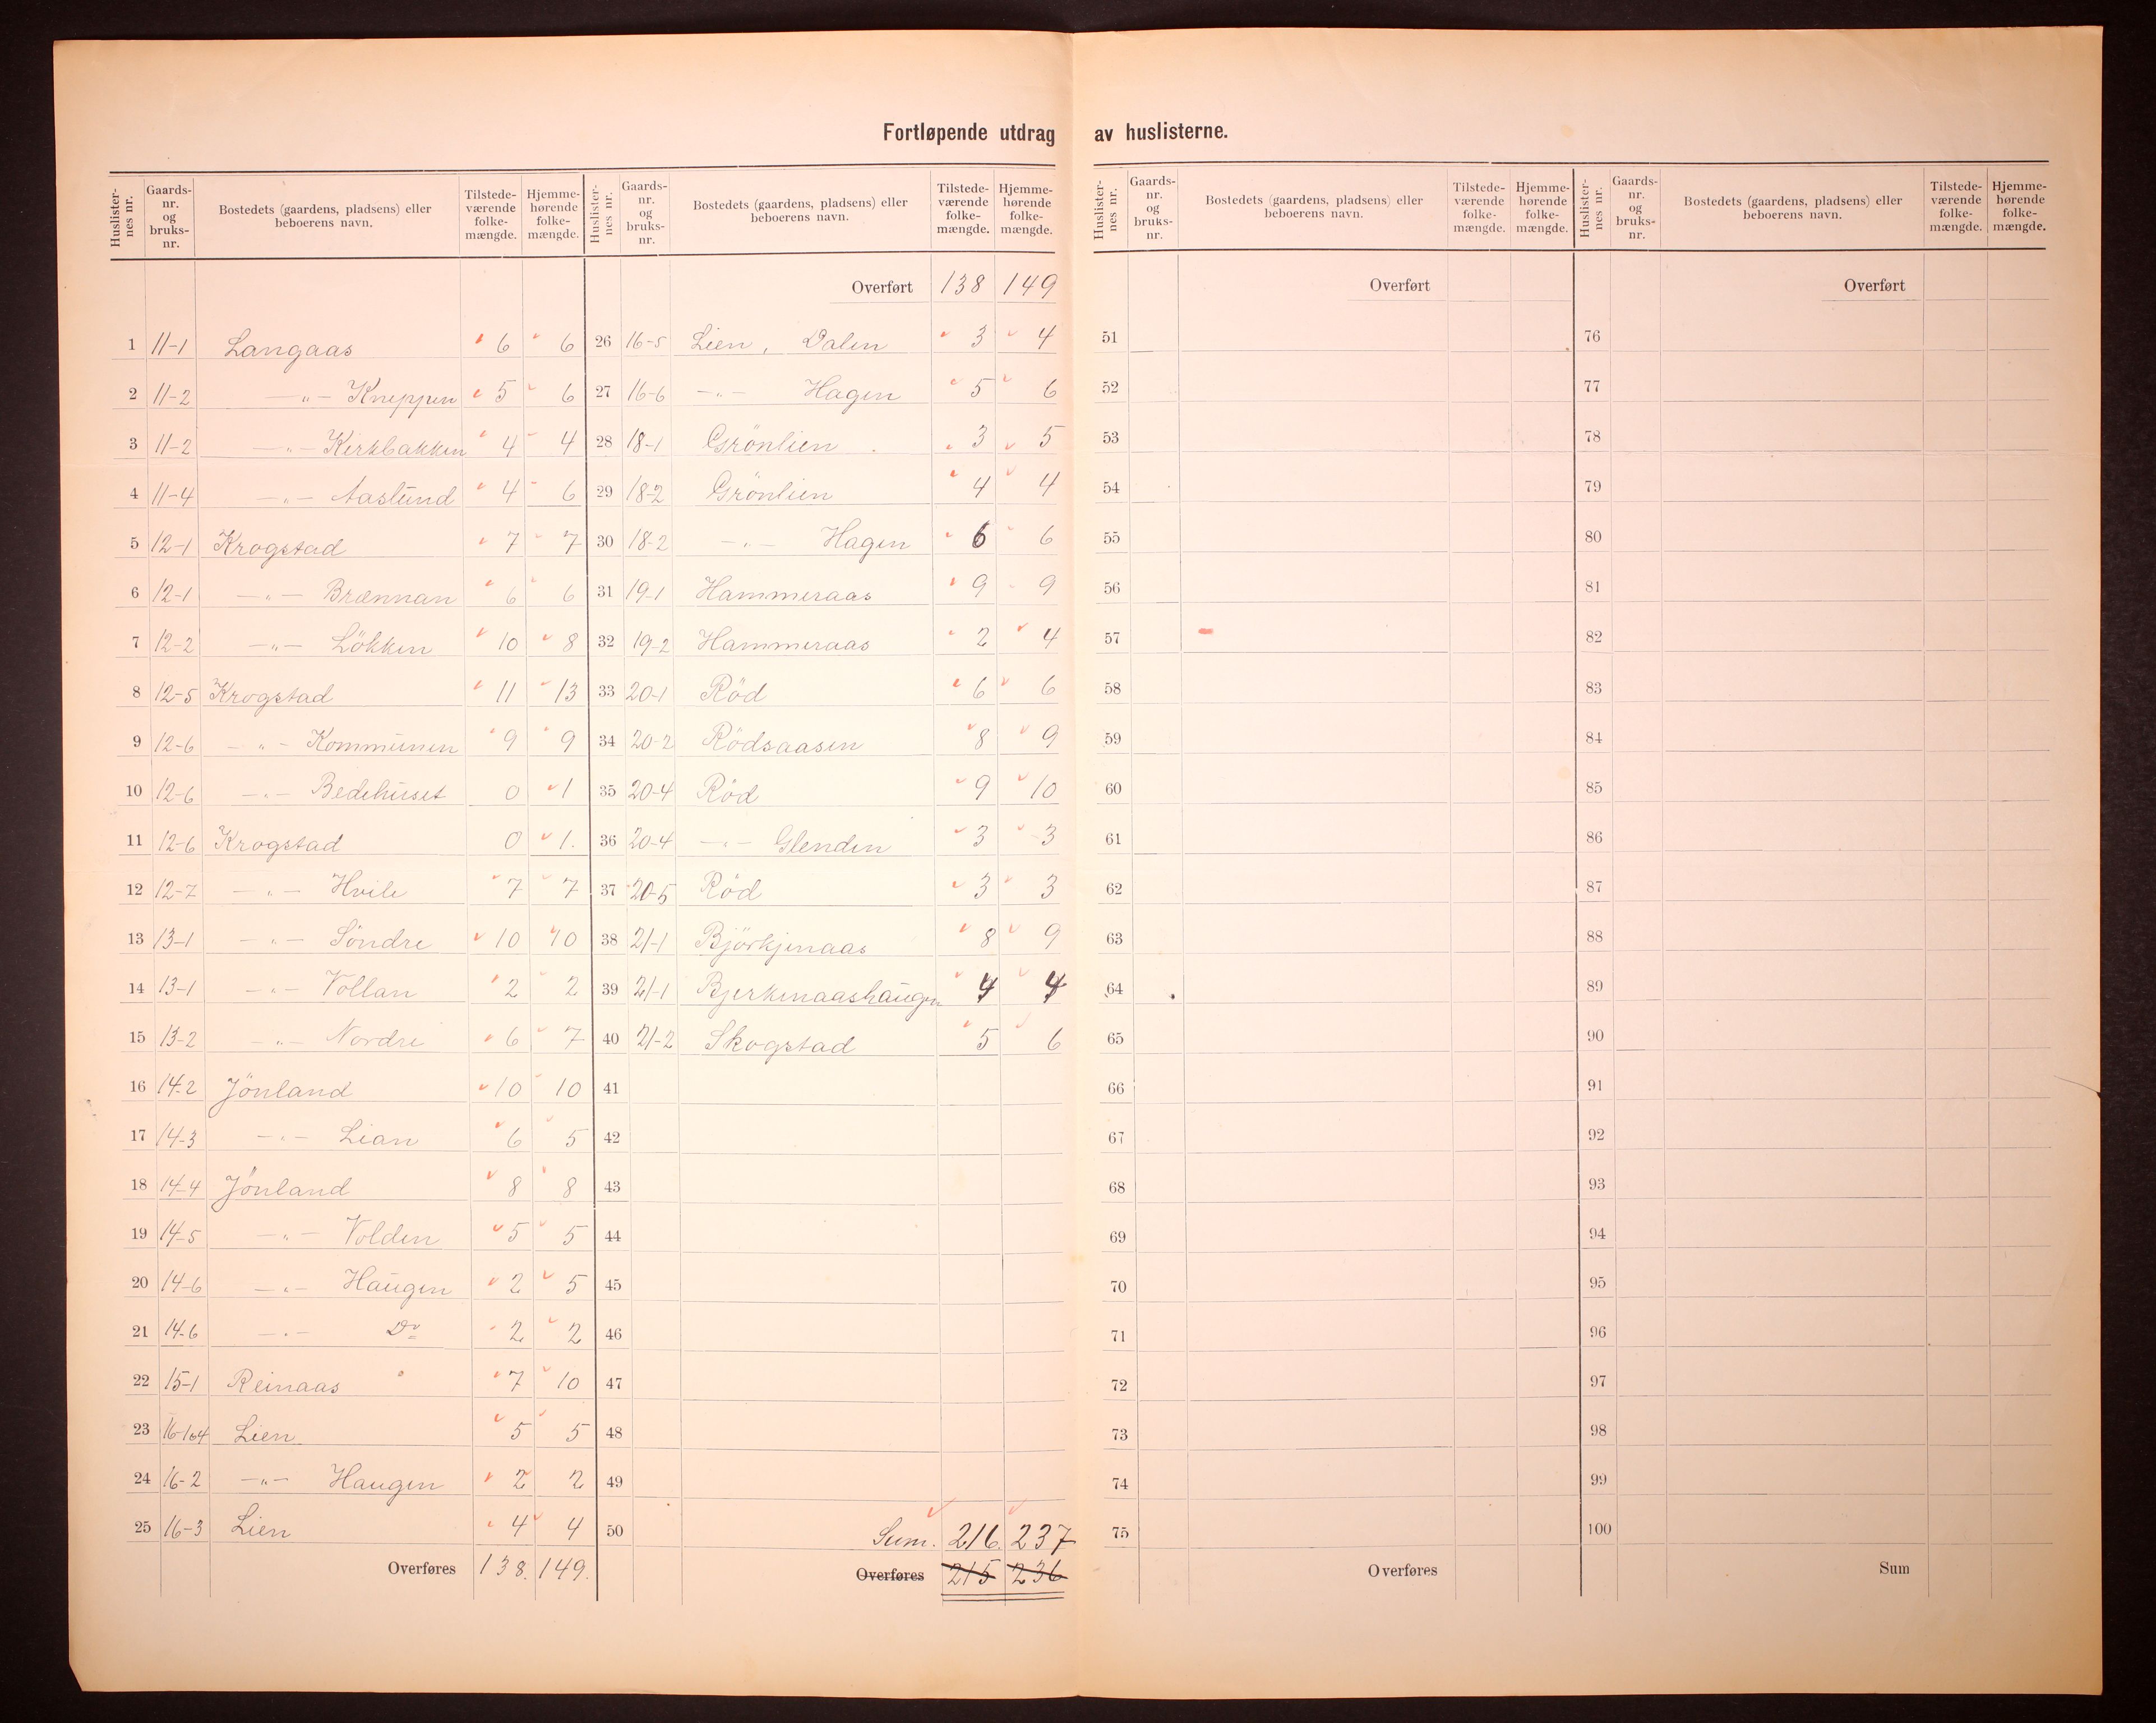 Fortløpende utdrag av huslisterne.
Huslisternes nr. Gaardsnr. og bruksnr. Bostedets (gaardens, pladsens) eller beboerens navn. Tilstedeværende folkemængde. Hjemmehørende folkemængde.
1 11-1 Langaas 6 6
2 11-2 —"— Kneppen 5 6
3 11-2 —"— Kirkbakken 4 4
4 11-4 —"— Aaslund 4 6
5 12-1 Krogstad 7 7
6 12-1 —"— Brænnan 6 6
7 12-2 —"— Lökken 10 8
8 12-5 Krogstad 11 13
9 12-6 —"— Kommunen 9 9
10 12-6 —"— Bedehuset 0 1
11 12-6 Krogstad 0 1.
12 12-7 —"— Hvile 7 7
13 13-1 —"— Söndre 10 10
14 13-1 —"— Vollan 2 2
15 13-2 —"— Nordre 6 7
16 14-2 Jönland 10 10
17 14-3 —"— Lian 6 5
18 14-4 Jönland 8 8
19 14-5 —"— Volden 5 5
20 14-6 —"— Haugen 2 5
21 14-6 —"— Do 2 2
22 15-1 Reinaas 7 10
23 16-1o4 Lien 5 5
24 16-2 —"— Haugen 2 2
25 16-3 Lien 4 4
Overføres 138. 149.
Huslisternes nr. Gaardsnr. og bruksnr. Bostedets (gaardens, pladsens) eller beboerens navn. Tilstedeværende folkemængde. Hjemmehørende folkemængde.
Overført 138 149
26 16-5 Lien, Dalen 3 4
27 16-6 —"— Hagen 5 6
28 18-1 Grönlien 3 5
29 18-2 Grönlien 4 4
30 18-2 —"— Hagen 6 6
31 19-1 Hammeraas 9 9
32 19-2 Hammeraas 2 4
33 20-1 Röd 6 6
34 20-2 Rödsaasen 8 9
35 20-4 Röd 9 10
36 20-4 —"— Glenden 3 3
37 20-5 Röd 3 3
38 21-1 Björkjenaas 8 9
39 21-1 Bjerkenaashaugen 4 4
40 21-2 Skogstad 5 6
41
42
43
44
45
46
47
48
49
50 Sum. 216. 237
Overføres 215 236
Huslisternes nr. Gaardsnr. og bruksnr. Bostedets (gaardens, pladsens) eller beboerens navn. Tilstedeværende folkemængde. Hjemmehørende folkemængde.
Overført
51
52
53
54
55
56
57
58
59
60
61
62
63
64
65
66
67
68
69
70
71
72
73
74
75
Overføres
Huslisternes nr. Gaardsnr. og bruksnr. Bostedets (gaardens, pladsens) eller beboerens navn. Tilstedeværende folkemængde. Hjemmehørende folkemængde.
Overført
76
77
78
79
80
81
82
83
84
85
86
87
88
89
90
91
92
93
94
95
96
97
98
99
100
Sum